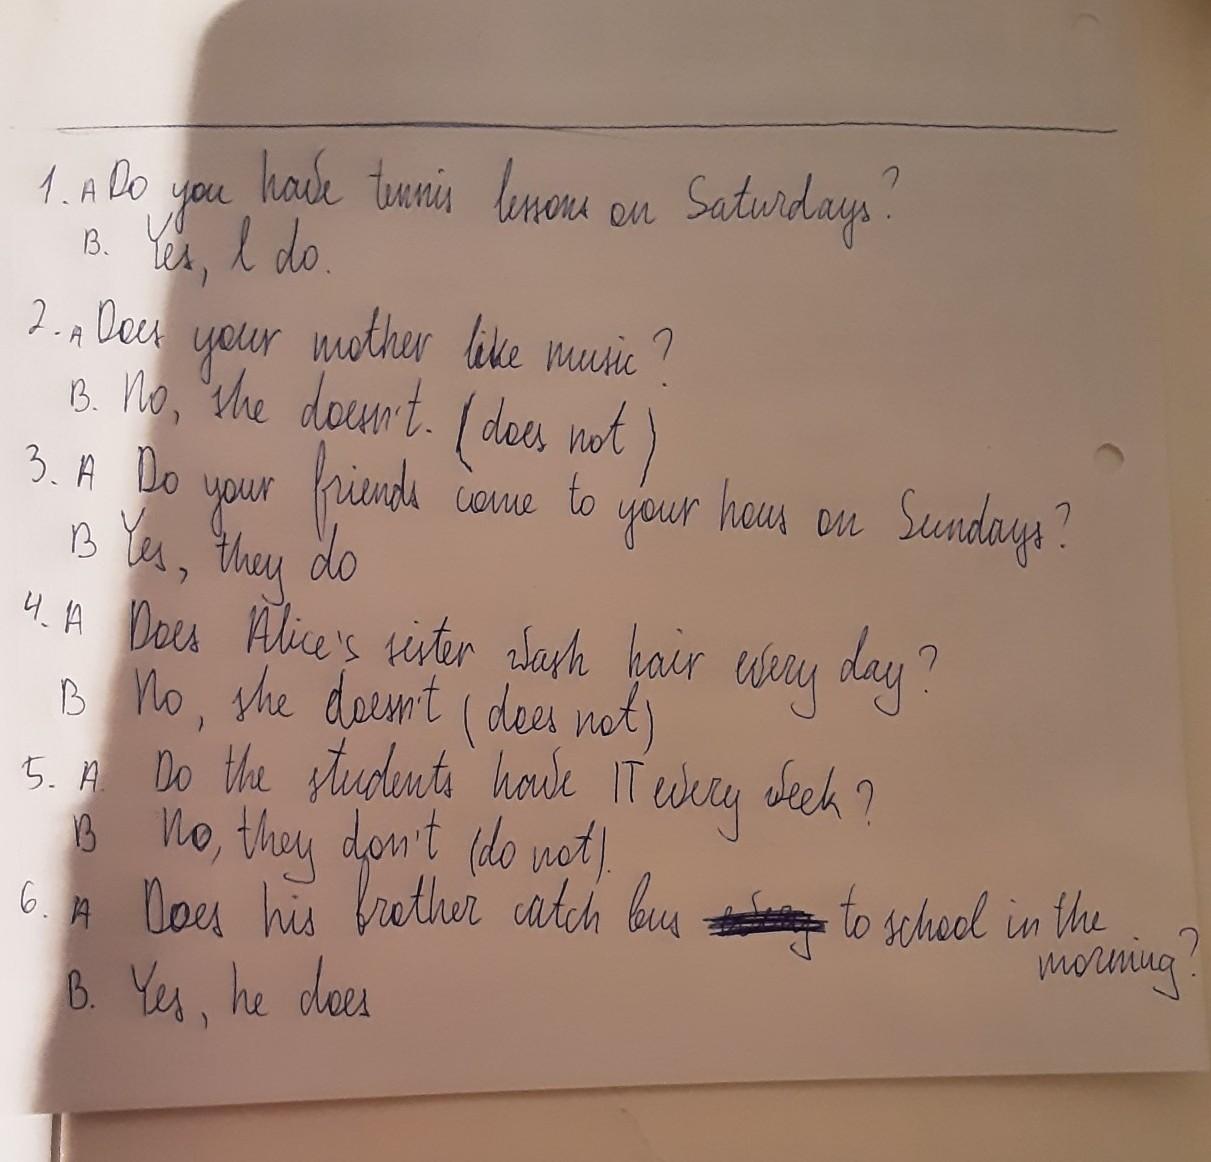 1. A Do you have tennis lessons on Saturdays?
B. Yes, I do.
2. A Does your mother like music?
B. No, she doesn't. (does not)
3. A Do your friends come to your hous on Sundays?
B Yes, they do
4. A Does Alice's sister wash hair every day?
B No, she doesn't (does not)
5. A. Do the students have IT every week?
B No, they don't (do not).
6. A Does his brother catch bus to school in the
morning?
B. Yes, he does